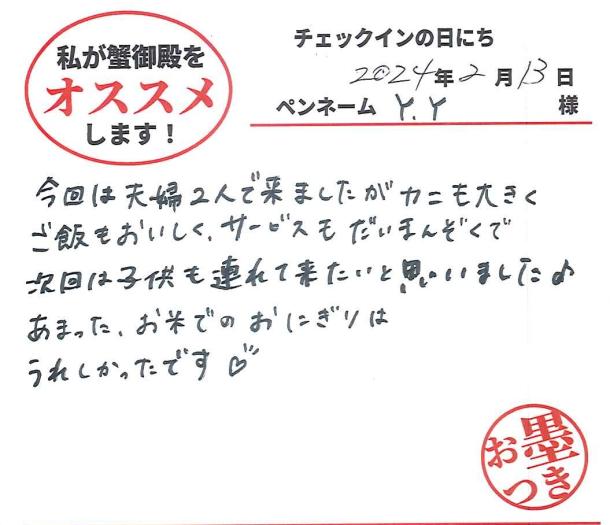 私が蟹御殿を
オススメ
します!
チェックインの日にち
2024年2月13日
ペンネーム Y.Y 様
今回は夫婦2人で来ましたがカニも大きく
ご飯もおいしく、サービスもだいまんぞくで
次回は子供も連れて来たいと思いいました♪
あまった、お米でのおにぎりは
うれしかったです♡
お墨
つき